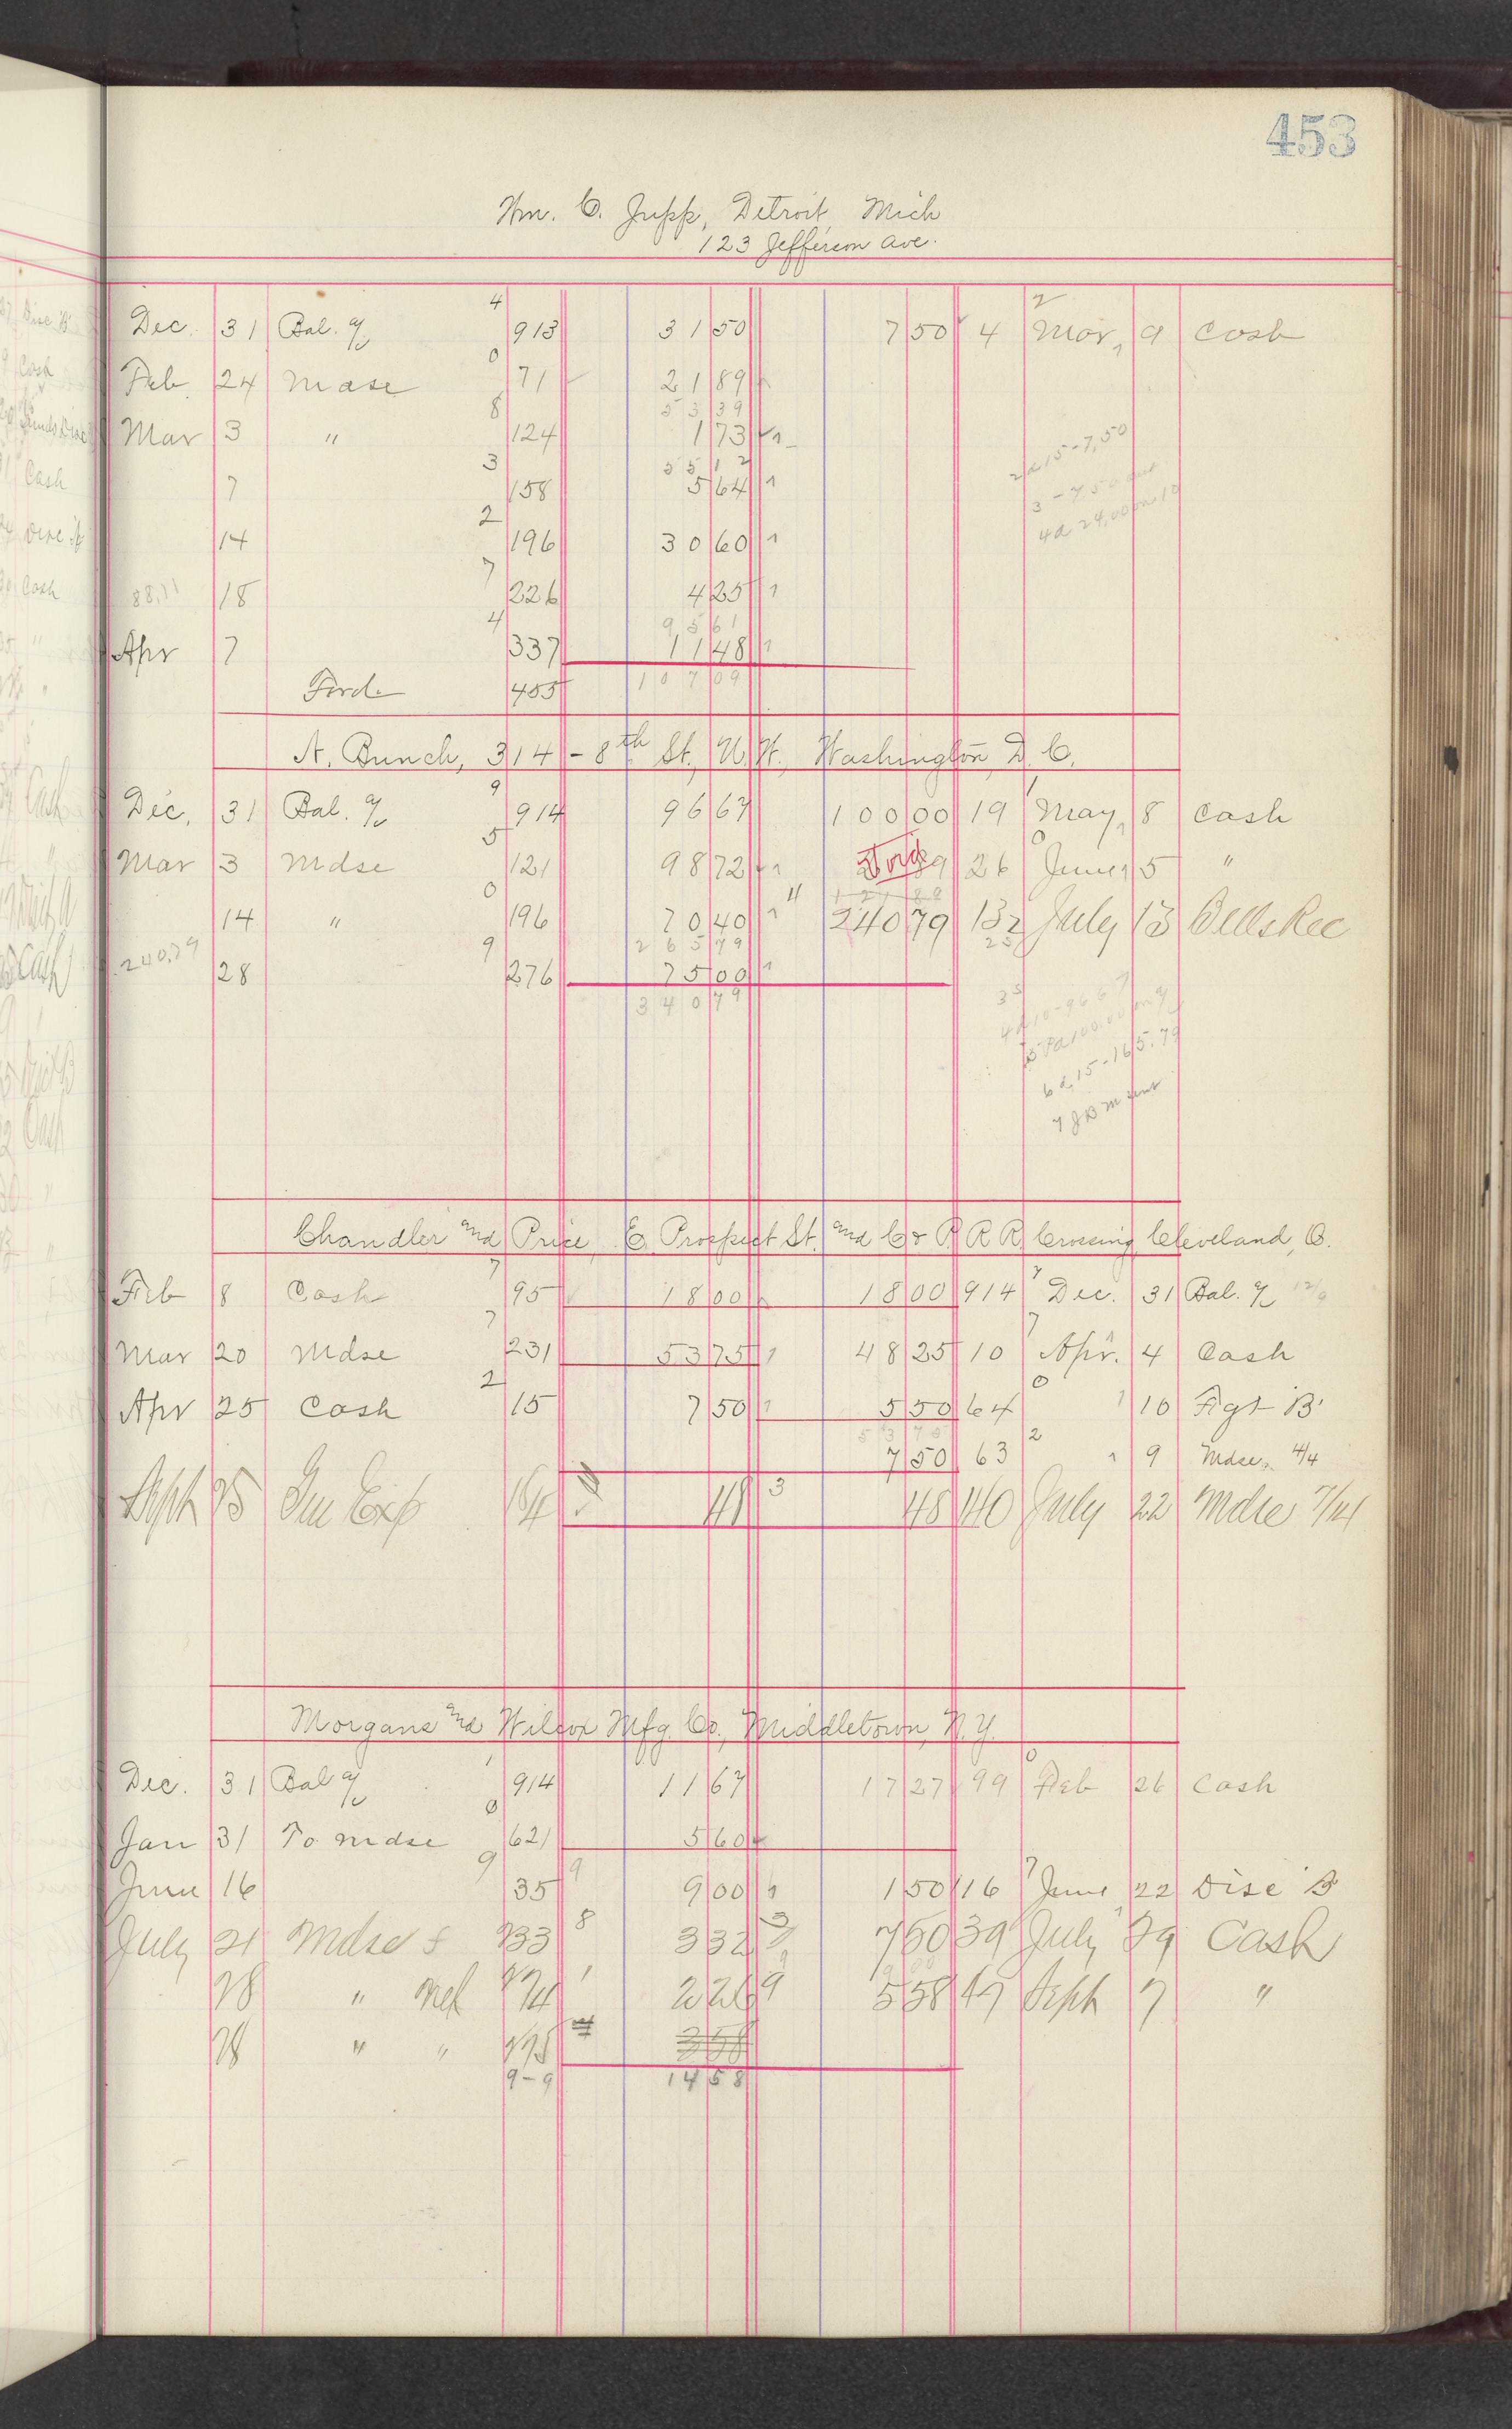 453
Wm. C. Jupp, Detroit, Mich
123 Jefferson Ave.
4 2
Dec. 31 Bal. 913 31 50 7 50 4 Mar, 9 Cash
0
Feb. 24 Mdse 71 21 89
8 53 39
Mar 3 " 124 1 73
3 55 12 2d 15-7.50
7 158 5 64
2 4d 24.00 on 10
14 196 30 60
7
88,11 18 226 4 25
4 95 61
Apr 7 337 11 48
Ford 455 107 09
A. Bunch, 314 - 8th St., N.W., Washington, D.C.
9 1
Dec. 31 Bal. 914 96 67 100 00 19 May, 8 Cash
5 0
Mar 3 Mdse 121 98 72 26 June 15 "
0 4
14 " 196 70 40 240 79 132 July 13 Bills Rec
9 265 79 25
240.79 28 276 75 00
340 79
35
4d 10-96 67
5 Pd 100.00 on %
6d. 15-165.79
7 JBM sent
Chandler and Price, E. Prospect St. and C & P. R R R Crossing, Cleveland, O.
7 7
Feb 8 Cash 95 18 00 18 00 914 Dec. 31 Bal. 12/6
7 7
Mar 20 Mdse 231 53 75 48 25 10 Apr. 4 Cash
2 0
Apr 25 Cash 15 7 50 5 50 64 10 Frgt 'B'
53 75 2
7 50 63 " 9 Mdse, 4/4
Sept 25 Gen Exp 164 48 3 48 140 July 22 Mdse 7/21
Morgans and Wilcox Mfg. Co., Middletown, N.Y.
1 0
Dec. 31 Bal 914 11 67 17 27 99 Feb 26 Cash
0
Jan 31 To Mdse 621 5 60
9 9 7
June 16 35 9 00 1 50 16 June 22 Disc 'B'
July 21 Mdse 233 8 3 32 7 50 39 July 29 Cash
28 " 274 1 2 26 9 5 58 47 Sept 7 "
28 " " 275
9-9 14 58